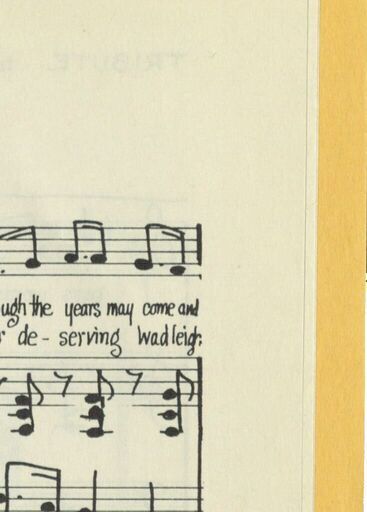 ugh the years may come and
de - serving Wadleigh